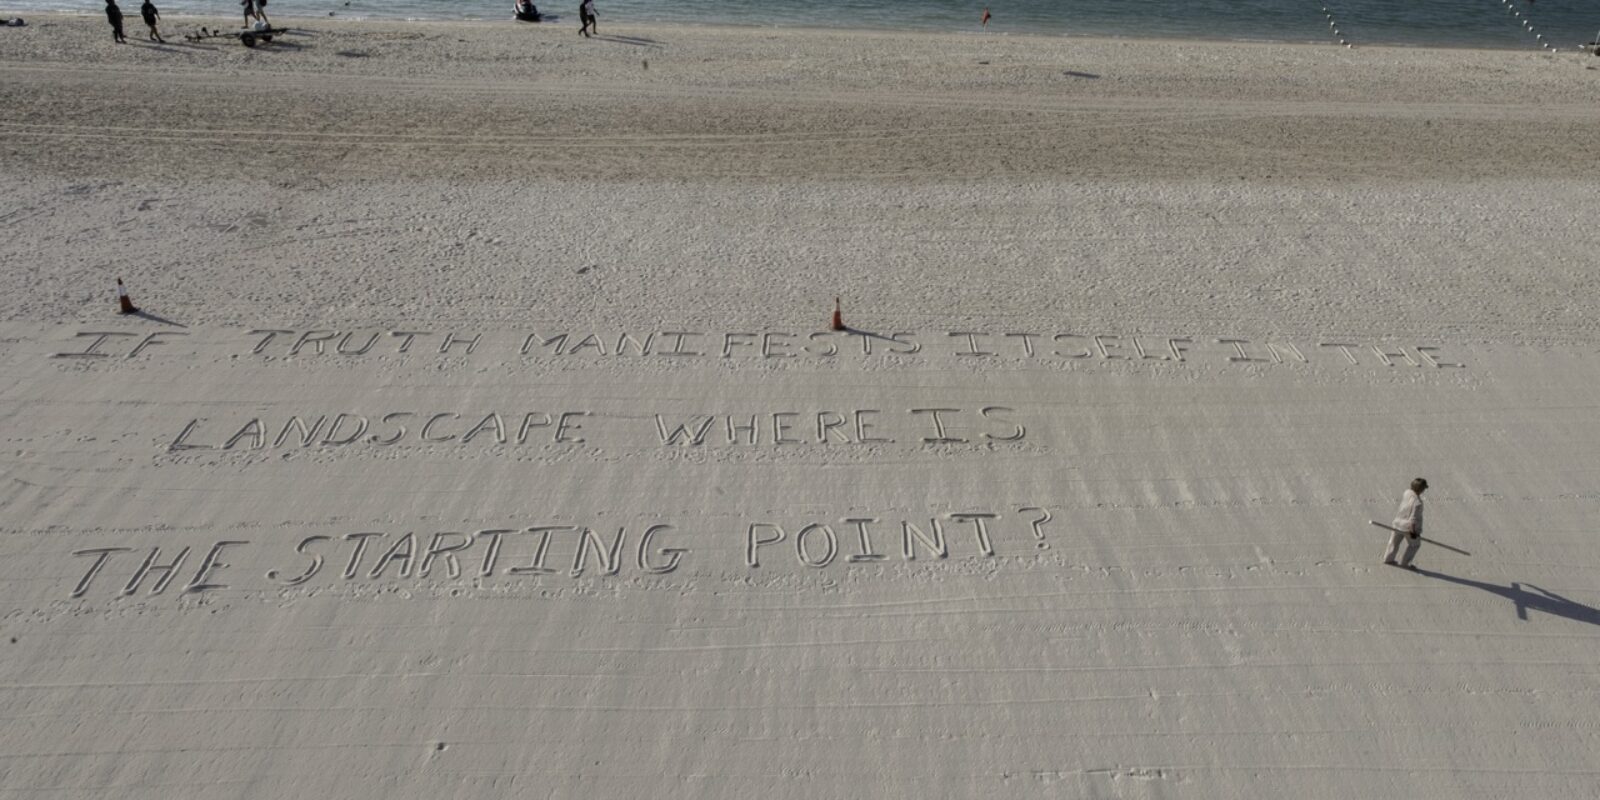 IF TRUTH MANIFESTS ITSELF IN THE
LANDSCAPE WHERE IS
THE STARTING POINT?